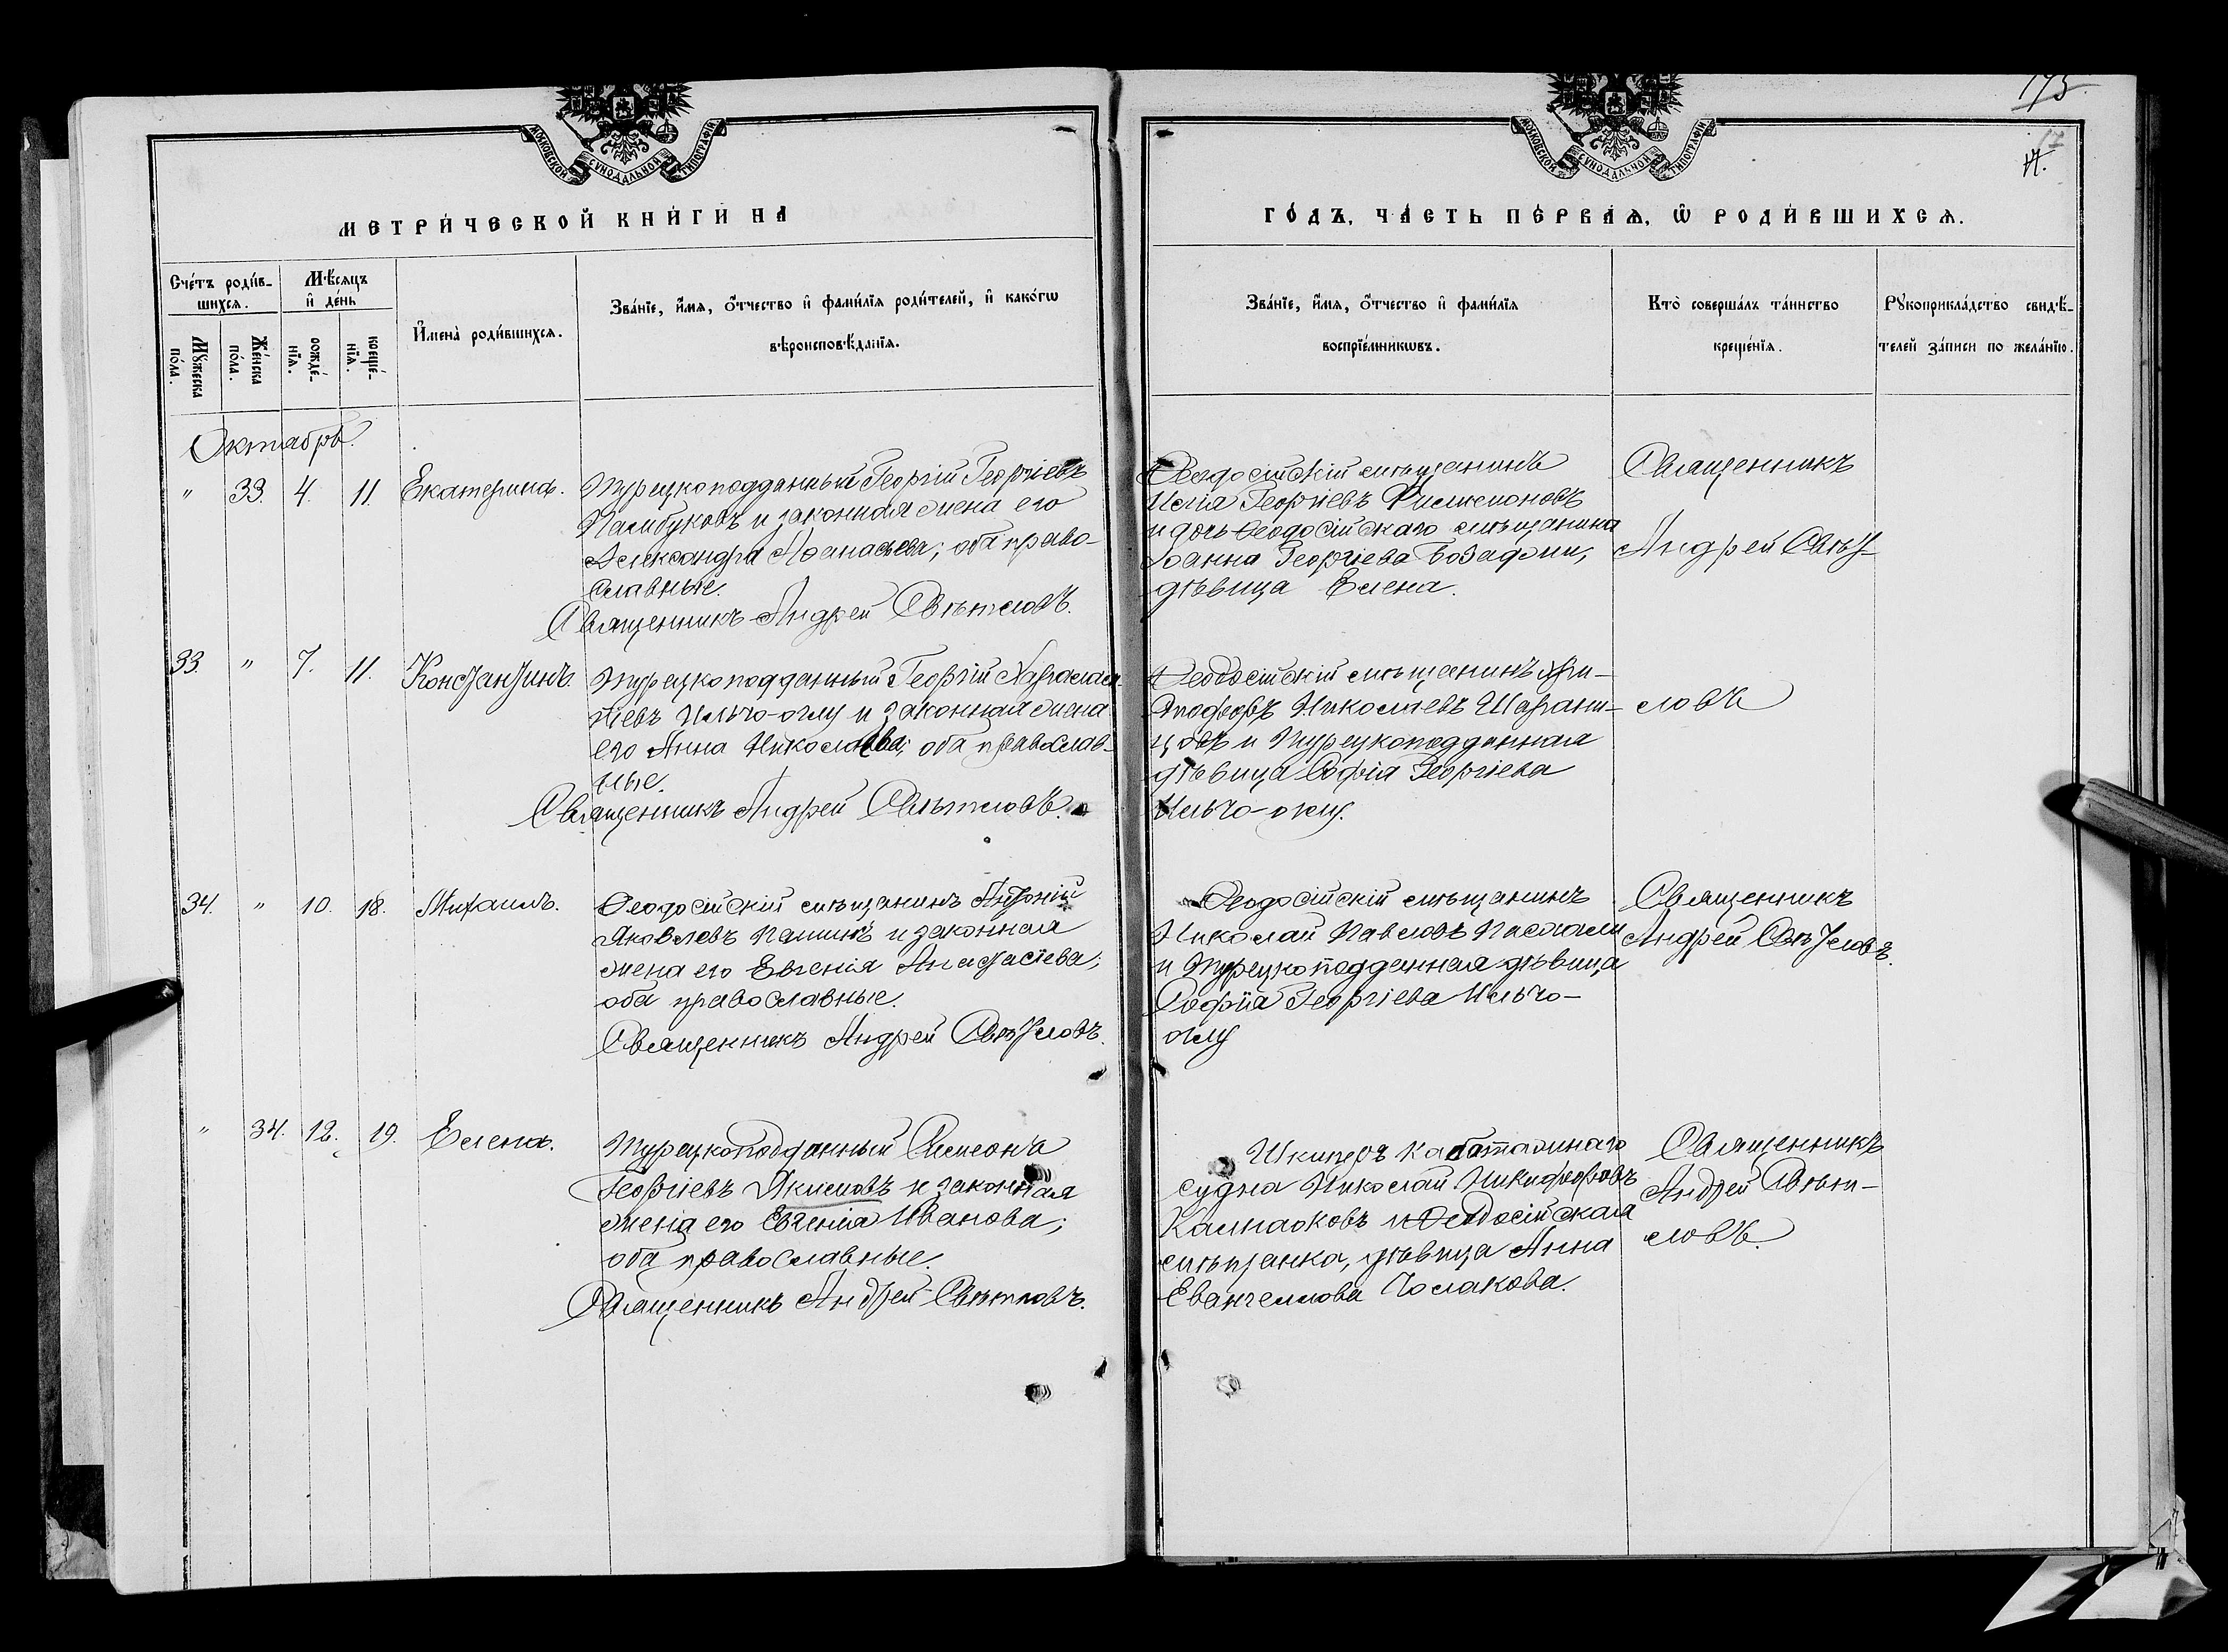 175
17
17.
МОСКОВСКОЙ СѴНОДАЛЬНОЙ ТИПОГРАФІИ
МОСКОВСКОЙ СѴНОДАЛЬНОЙ ТИПОГРАФІИ
МЕТРИ́ЧЕСКОЙ КНИ́ГИ НА
ГО́ДЪ, ЧА́СТЬ ПЕ́РВАѦ, Ѽ РОДИ́ВШИХСѦ.
Сче́тъ роди́в-
шихсѧ.
Мꙋ́жеска по́ла.
Же́нска по́ла.
Мѣ́сѧцъ
и҆ де́нь
рожде́-
нїѧ.
креще́-
нїѧ.
И҆мена̀ роди́вшихсѧ.
Зва́нїе, и҆́мѧ, ѻ҆́тчество и҆ фами́лїѧ роди́телей, и҆ како́гѡ
вѣроисповѣ́данїѧ.
Зва́нїе, и҆́мѧ, ѻ҆́тчество и҆ фами́лїѧ
воспрїе́мникѡвъ.
Кто̀ соверша́лъ та́инство
креще́нїѧ.
Рꙋкоприкла́дство свидѣ́-
телей за́писи по жела́нїю.
Октябрь.
" 33. 4. 11. Екатерина.
Турецкоподданный Георгій Георгіевъ
Памбуковъ и законная жена его
Александра Аѳанасьева; оба право-
славные.
Священникъ Андрей Свѣтловъ.
Ѳеодосійскій мѣщанинъ
Илія Георгіевъ Филимоновъ
и дочь Ѳеодосійскаго мѣщанина
Іоанна Георгіева
дѣвица Елена.
Священникъ
Андрей Свѣт-
33. " 7. 11. Константинъ.
Турецкоподданный Георгій Харалам-
піевъ Ильчо-оглу и законная жена
его Анна Николаева; оба православ-
ные.
Священникъ Андрей Свѣтловъ.
Ѳеодосійскій мѣщанинъ Хри-
стофоръ Николаевъ Шарани-
цовъ и Турецкоподданная
дѣвица Софія Георгіева
Ильчо-оглу.
ловъ
34. " 10. 18. Михаилъ.
Ѳеодосійскій мѣщанинъ Антоній
Яковлевъ и законная
жена его Евгенія Анастасіева;
оба православные.
Священникъ Андрей Свѣтловъ.
Ѳеодосійскій мѣщанинъ
Николай Павловъ
и Турецкоподданная дѣвица
Софія Георгіева Ильчо-
оглу
Священникъ
Андрей Свѣтловъ.
" 34. 12. 19. Елена.
Турецкоподданный Симеонъ
Георгіевъ Якимовъ и законная
жена его Евгенія Иванова;
оба православные.
Священникъ Андрей Свѣтловъ.
Шкиперъ каботажнаго
судна Николай Никифоровъ
Калпаковъ и Ѳеодосійская
мѣщанка, дѣвица Анна
Евангелова Чолакова.
Священникъ
Андрей Свѣт-
ловъ.